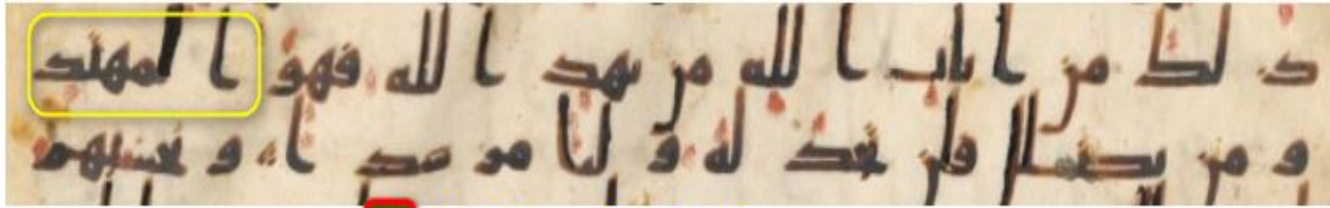 ذلك من ايات الله من يهد الله فهو المهتد
و من يضلل فلن تجد له و ليا مرشدا و تحسبهم